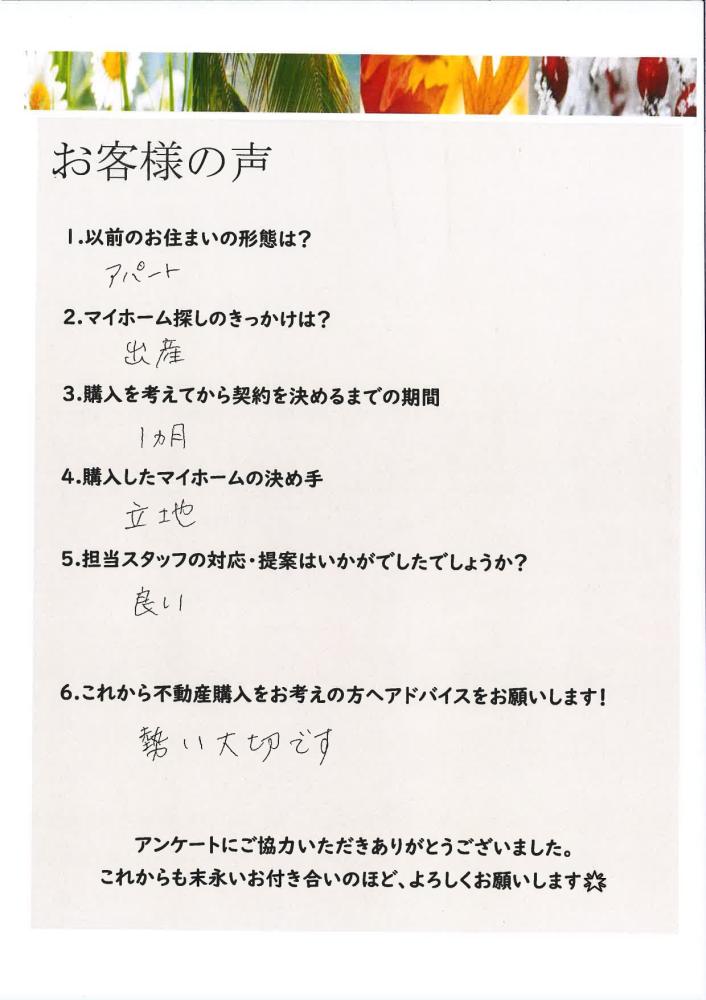 お客様の声
1.以前のお住まいの形態は?
アパート
2.マイホーム探しのきっかけは?
出産
3.購入を考えてから契約を決めるまでの期間
1ヵ月
4.購入したマイホームの決め手
立地
5.担当スタッフの対応・提案はいかがでしたでしょうか?
良い
6.これから不動産購入をお考えの方へアドバイスをお願いします!
勢い大切です
アンケートにご協力いただきありがとうございました。
これからも末永いお付き合いのほど、よろしくお願いします